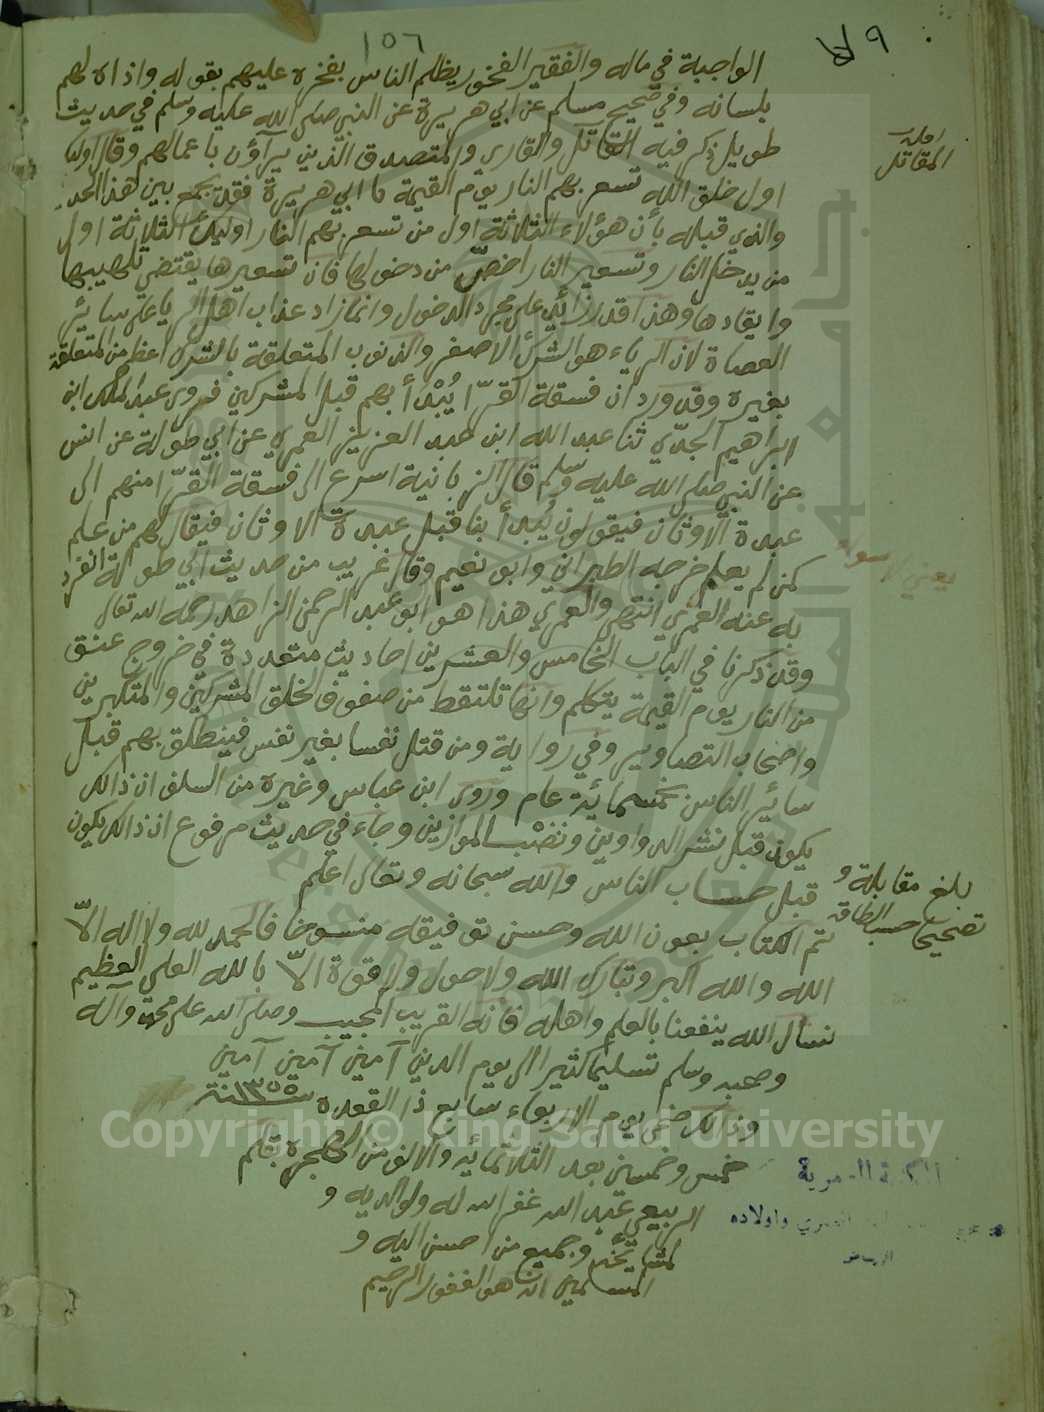 ١٥٦
الواجبة في ماله والفقير الفخور يظلم الناس بفخره عليهم بقوله واذاه لهم
بلسانه وفي صحيح مسلم عن ابي هريرة عن النبي صلى الله عليه وسلم في حديث
طويل ذكر فيه القاتل والقاري والمتصدق الذين يرآؤن باعمالهم وقال اوليك
المقاتل
اول خلق الله تسعر بهم النار يوم القيمة يا ابي هريرة فقد يجمع بين هذا الحد
والذي قبله بأن هؤلاء الثلاثة اول من تسعر بهم النار اوليك الثلاثة اول
من يدخل النار وتسعير النار اخص من دخولها فان تسعيرها يقتضي تلهيبها
وايقادها وهذا قدر زائد على مجرد الدخول وانما زاد عذاب اهل الريا على سائر
العصاة لان الرياء هو الشرك الاصغر والذنوب المتعلقة بالشرك اعظم من المتعلقة
بغيره وقد ورد ان فسقة القرّا يُبْدأ بهم قبل المشركين فروى عبد الملك ابن
ابراهيم الجدّي ثنا عبد الله ابن عبد العزيز العمري عن ابي طوالة عن انس
عن النبي صلى الله عليه وسلم قال الزبانية اسرع الى فسقة القرّا منهم الى
عبدة الاوثان فيقولون يُبدأ بنا قبل عبدة الاوثان فيقال لهم من علم
يعني لا سواء
كمن لم يعلم خرجه الطبراني وابو نعيم وقال غريب من حديث ابي طوالة تفرد
به عنه العمري انتهى والعمري هذا هو ابو عبد الرحمن الزاهد رحمه الله تعالى
وقد ذكرنا في الباب الخامس والعشرين احاديث متعددة في خروج عنق
من النار يوم القيمة يتكلم وانها تلتقط من صفوف الخلق المشركين والمتكبرين
واصحاب التصاوير وفي رواية ومن قتل نفسا بغير نفس فينطلق بهم قبل
سائر الناس بخمسمائة عام وروى ابن عباس وغيره من السلف ان ذالك
يكون قبل نشر الدواوين ونصْب الموازين وجاء في حديث مرفوع ان ذالك يكون
قبل حساب الناس والله سبحانه وتعالى اعلم
بلغ مقابلة و
تصحيحا حسب الطاقة
تم الكتاب بعون الله وحسن توفيقه منسوخا فالحمد لله ولا اله الا
الله والله اكبر وتبارك الله ولا حول ولا قوة الا بالله العلي العظيم
نسأل الله ينفعنا بالعلم واهله فانه القريب المجيب وصلى الله على محمد وآله
وصحبه وسلم تسليما كثيرا الى يوم الدين آمين آمين آمين
وذالك ضحى يوم الاربعاء سابع ذا القعدة سنة ١٣٥٥
خمس وخمسين بعد الثلاثمائة والالف من الهجرة بقلم
الربيعي عبد الله غفر الله له ولوالديه و
لمشايخه وجميع من احسن اليه و
المسلمين انه هو الغفور الرحيم
جامعة الملك سعود
Copyright © King Saud University